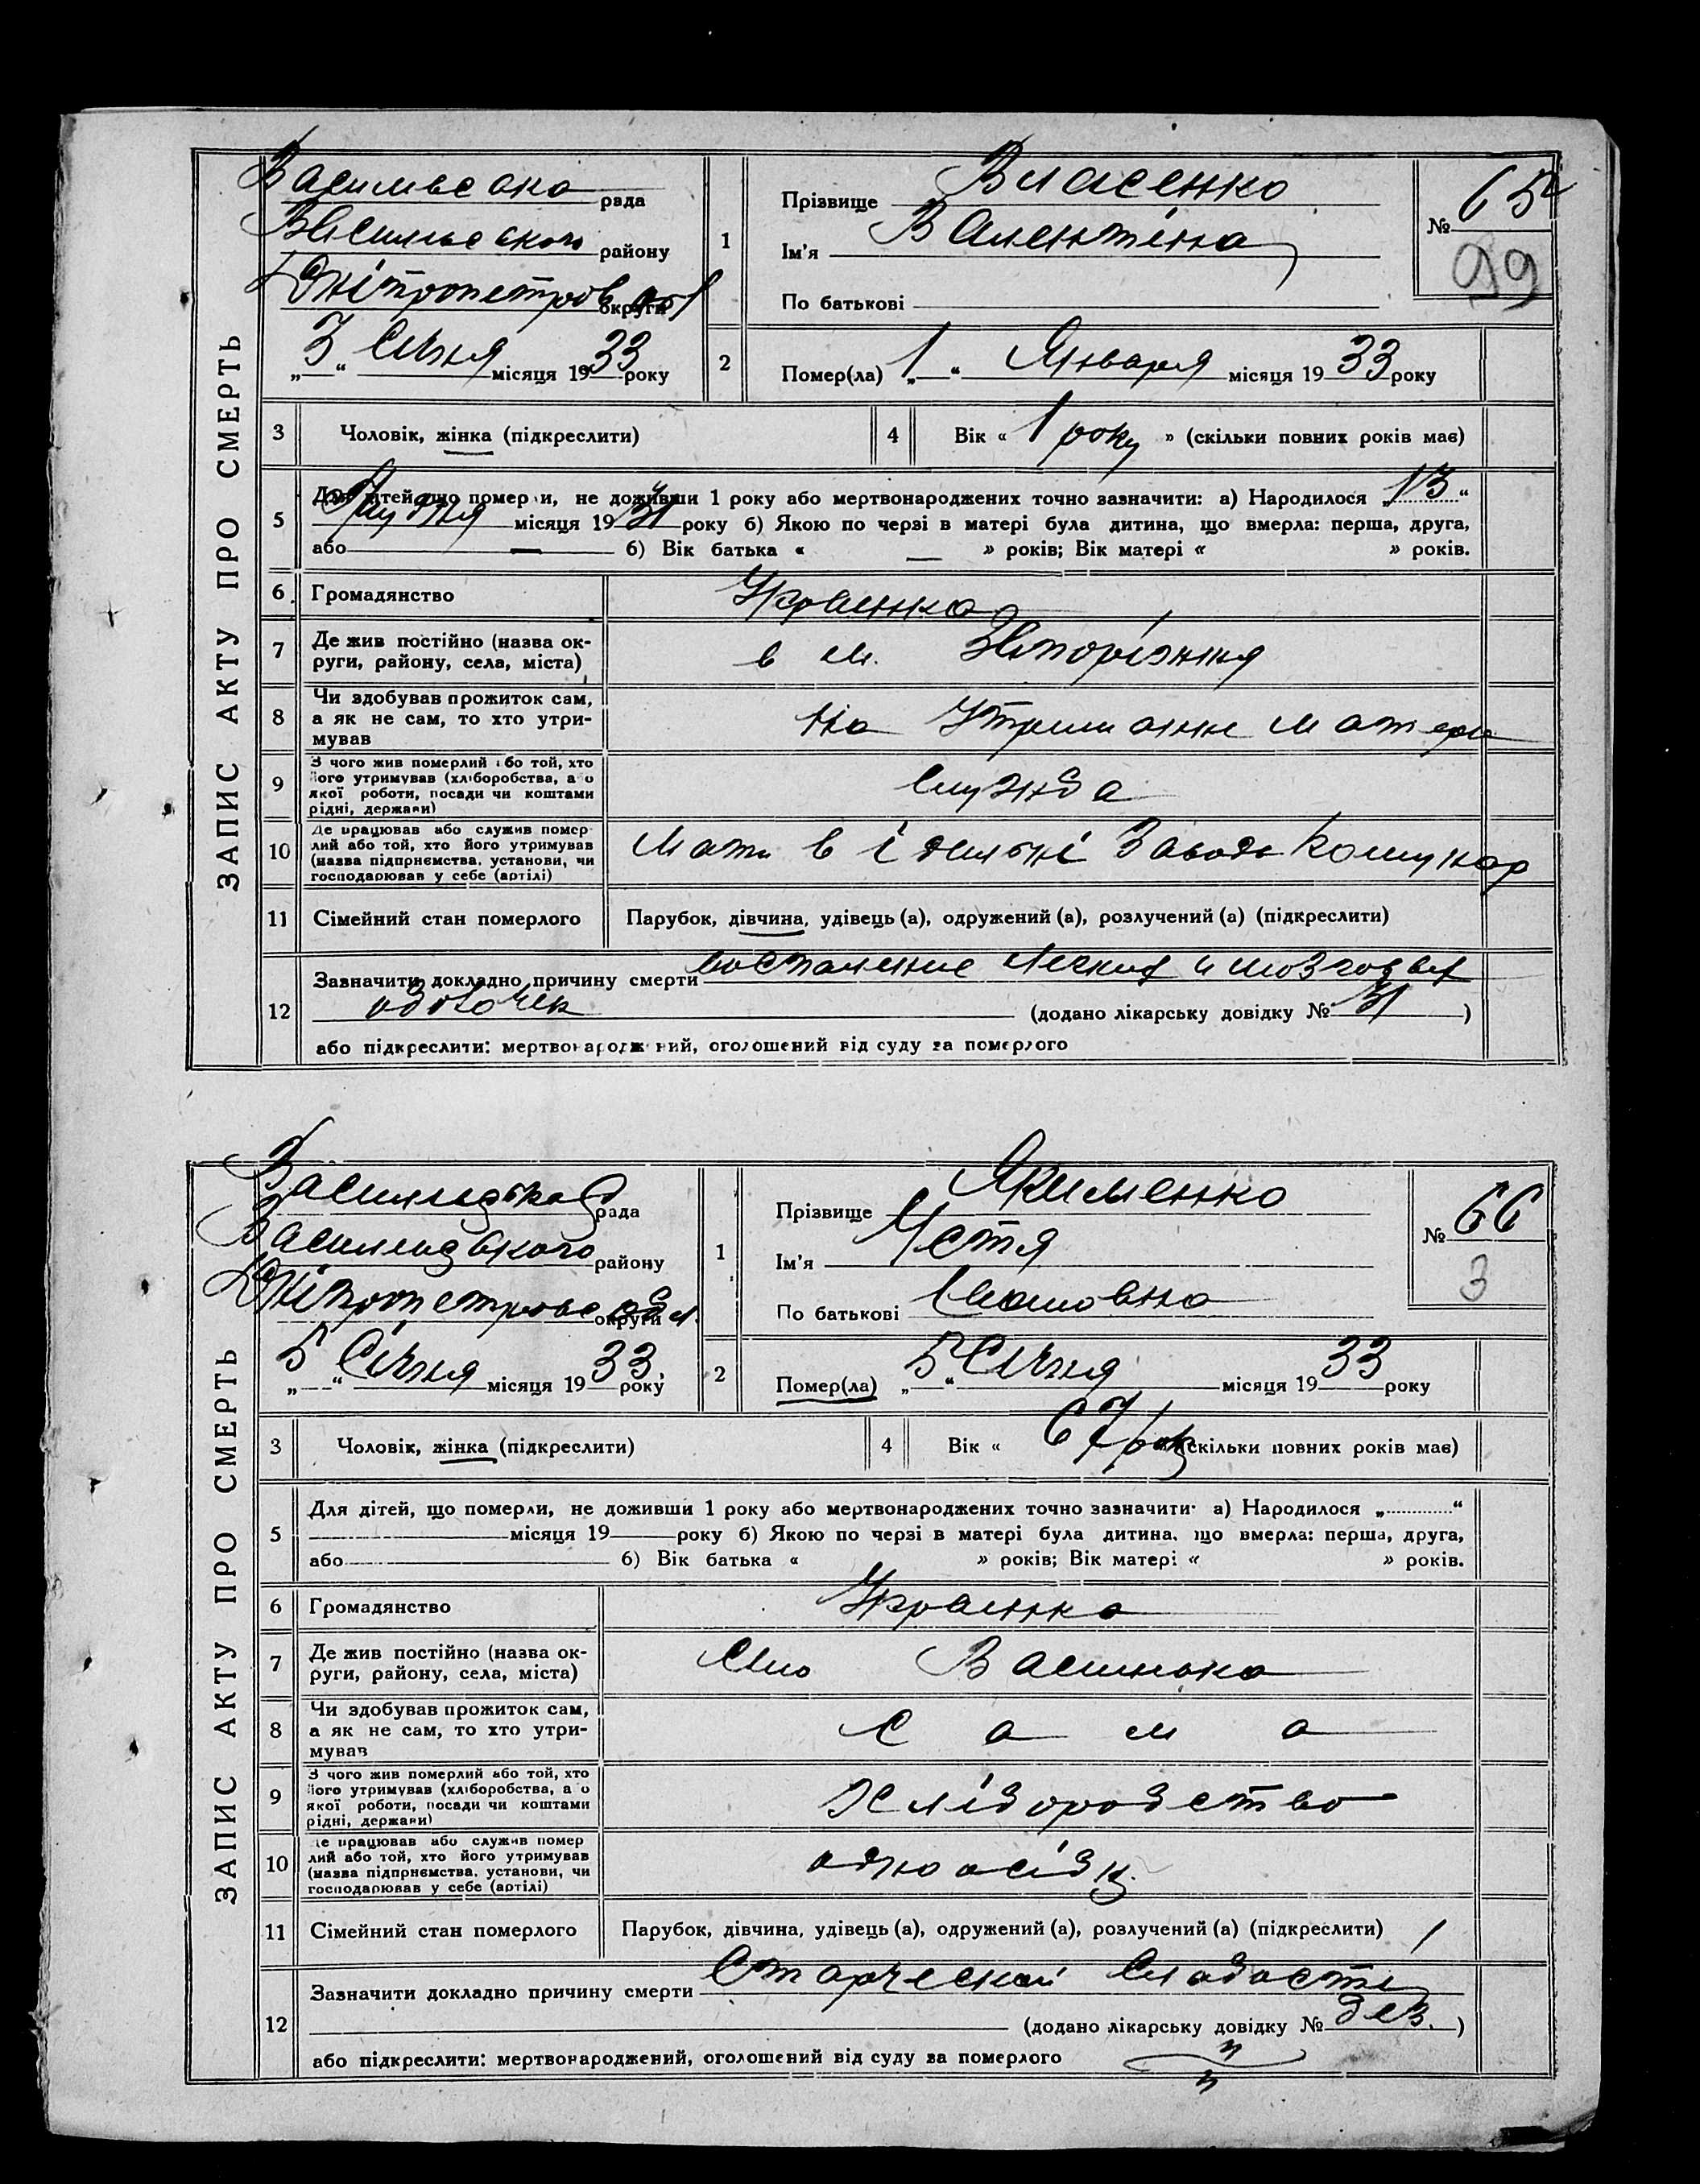 ЗАПИС АКТУ ПРО СМЕРТЬ
Васильевска рада
Васильевського району
Дніпропетров обл округи
„3“ Січня місяця 1933 року
1
Прізвище Власенко
Ім'я Валентіна
По батькові
№ 65
99
2
Помер(ла) „1“ Января місяця 1933 року
3 Чоловік, жінка (підкреслити)
4 Вік « 1 року » (скільки повних років має)
5
Для дітей, що померли, не доживши 1 року або мертвонароджених точно зазначити: а) Народилося „13“
Грудня місяця 1931 року б) Якою по черзі в матері була дитина, що вмерла: перша, друга,
або — б) Вік батька « — » років; Вік матері « » років.
6 Громадянство Украинка
7 Де жив постійно (назва ок-
руги, району, села, міста)
в м. Запоріжжя
8 Чи здобував прожиток сам,
а як не сам, то хто утри-
мував
На Утриманни матери
9 З чого жив померлий або той, хто
його утримував (хліборобства, а о
якої роботи, посади чи коштами
рідні, держави)
Служба
10 Де працював або служив помер
лий або той, хто його утримував
(назва підприємства, установи, чи
господарював у себе (артілі)
Мати в їдальні Завода Комунар
11 Сімейний стан померлого Парубок, дівчина, удівець (а), одружений (а), розлучений (а) (підкреслити)
12
Зазначити докладно причину смерти воспаление легких и мозговых
оболочек (додано лікарську довідку № 31 )
або підкреслити: мертвонароджений, оголошений від суду за померлого
ЗАПИС АКТУ ПРО СМЕРТЬ
рада
району
Дніпропетровс обл. округи
„5“ Січня місяця 1933 року
1
Прізвище Якименко
Ім'я Устя
По батькові
№ 66
3
2
Помер(ла) „5“ Січня місяця 1933 року
3 Чоловік, жінка (підкреслити)
4 Вік « 67 рок » (скільки повних років має)
5
Для дітей, що померли, не доживши 1 року або мертвонароджених точно зазначити: а) Народилося „ “
місяця 19 року б) Якою по черзі в матері була дитина, що вмерла: перша, друга,
або б) Вік батька « » років; Вік матері « » років.
6 Громадянство Украинка
7 Де жив постійно (назва ок-
руги, району, села, міста)
Село Василивка
8 Чи здобував прожиток сам,
а як не сам, то хто утри-
мував
сама
9 З чого жив померлий або той, хто
його утримував (хліборобства, а о
якої роботи, посади чи коштами
рідні, держави)
Хлібородство
10 Де працював або служив помер
лий або той, хто його утримував
(назва підприємства, установи, чи
господарював у себе (артілі)
одноосібн.
11 Сімейний стан померлого Парубок, дівчина, удівець (а), одружений (а), розлучений (а) (підкреслити)
12
Зазначити докладно причину смерти Старческой Слабости
(додано лікарську довідку № без. )
або підкреслити: мертвонароджений, оголошений від суду за померлого